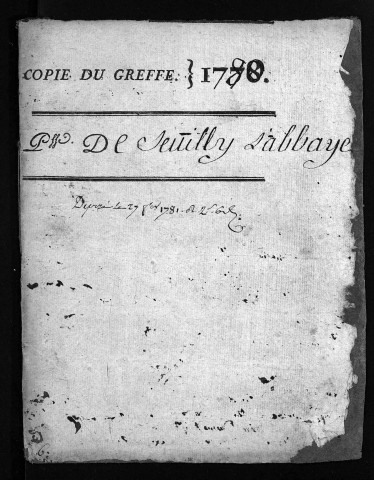 COPIE DU GREFFE. } 1780.
P^sse. De Seuilly L'abbaye
le 27 1781.